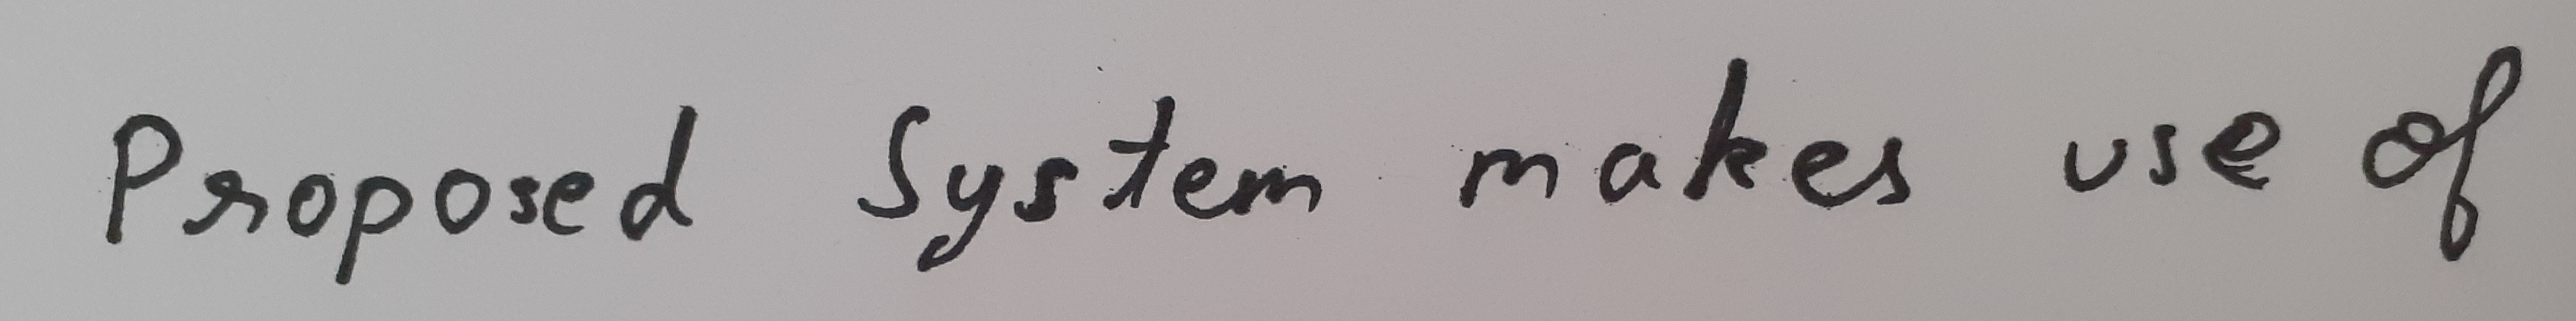 Proposed System makes use of